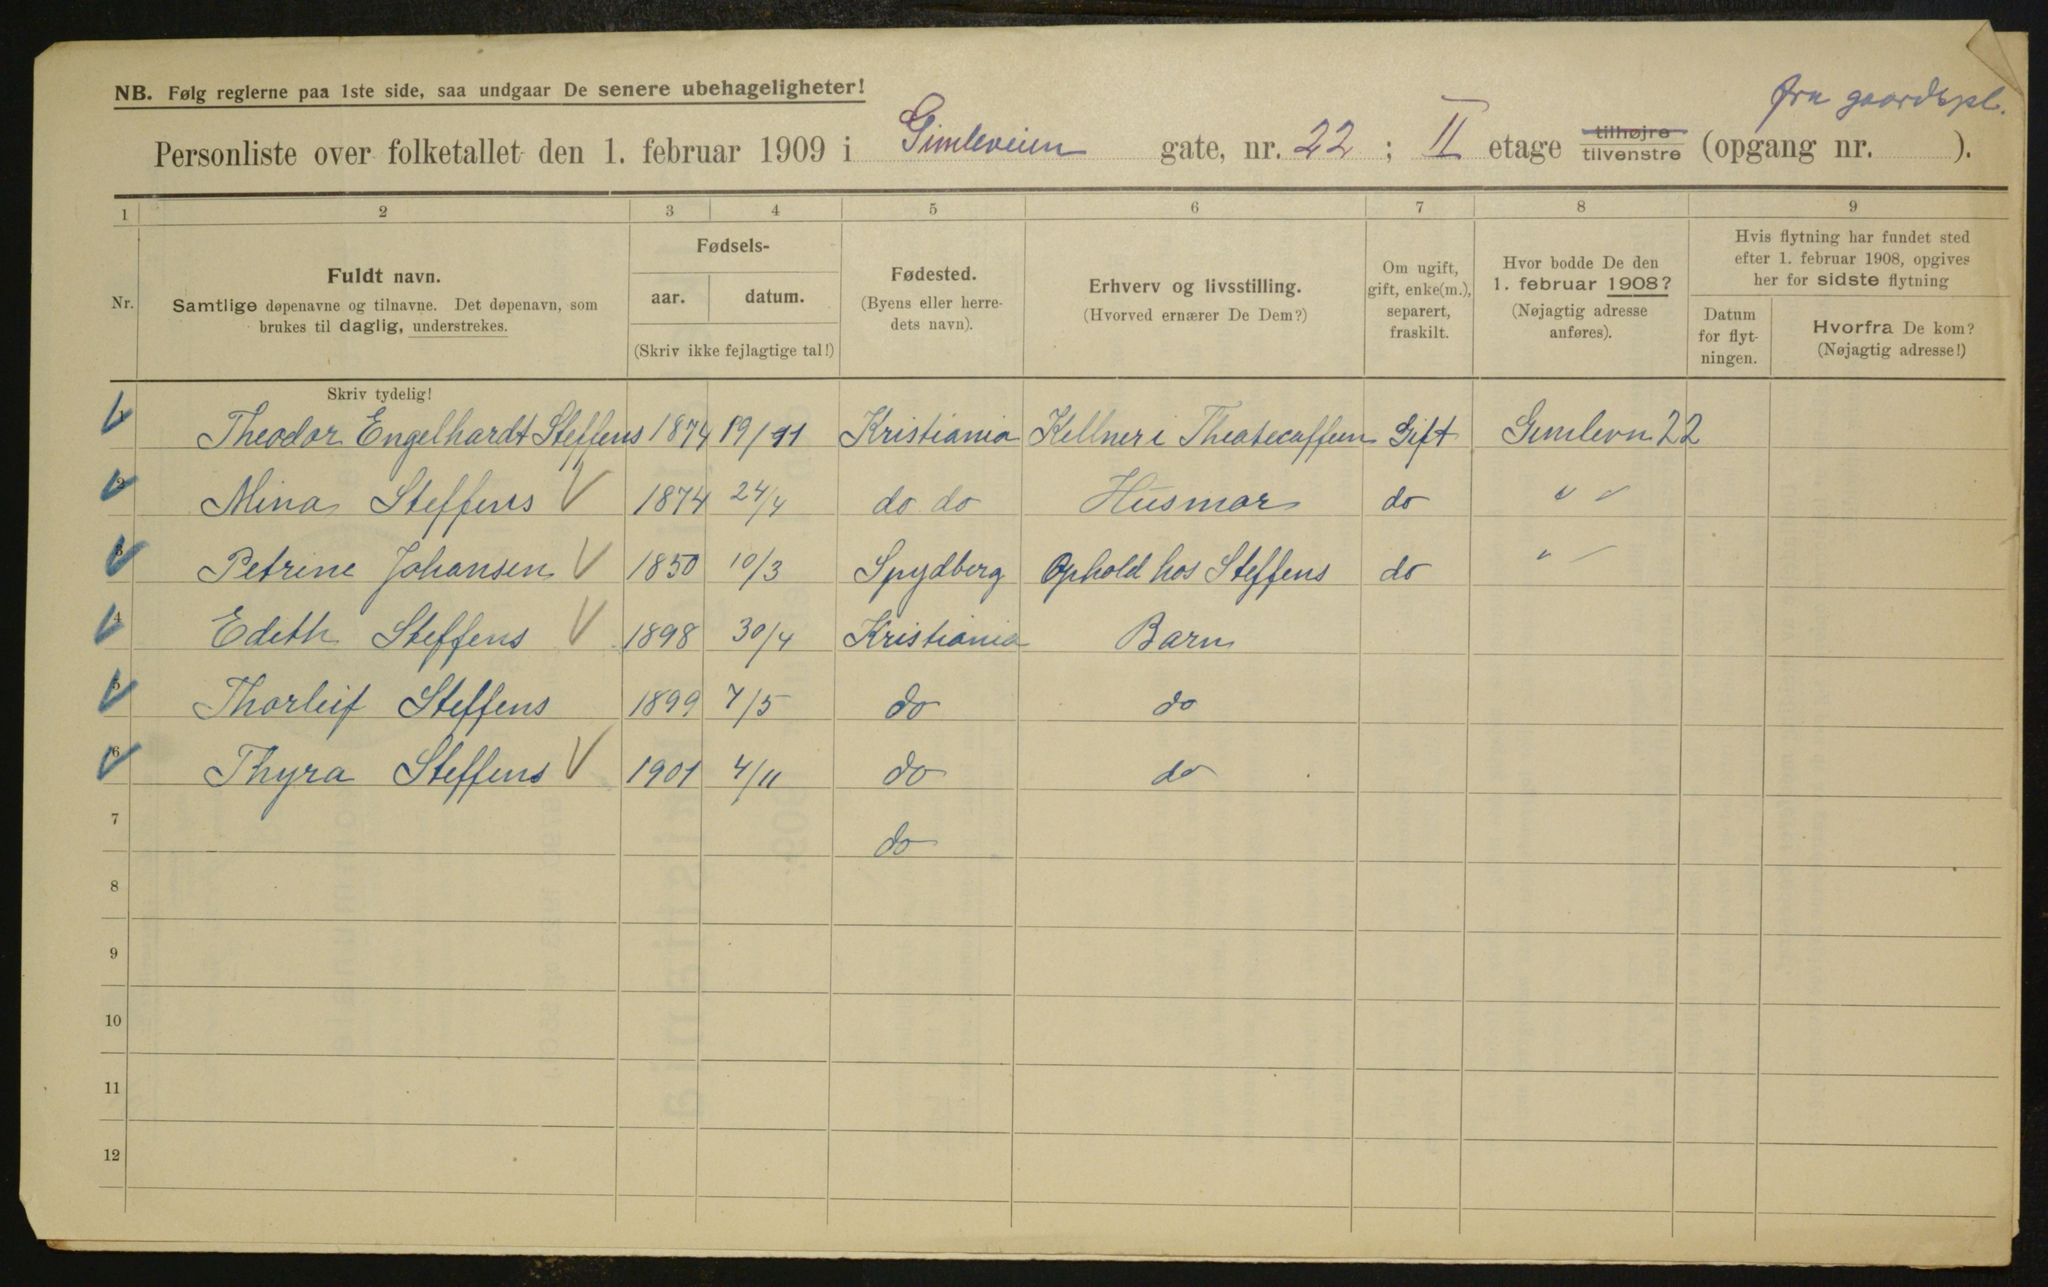 NB. Følg reglerne paa 1ste side, saa undgaar De senere ubehageligheter!
fra gaardspl.
Personliste over folketallet den 1. februar 1909 i Gimleveien gate, nr. 22 ; II etage tilhøjre tilvenstre (opgang nr. ).
1 2 3 4 5 6 7 8 9
Nr.
Fuldt navn.
Samtlige døpenavne og tilnavne. Det døpenavn, som
brukes til daglig, understrekes.
Fødsels-
aar. datum.
(Skriv ikke fejlagtige tal!)
Fødested.
(Byens eller herre-
dets navn).
Erhverv og livsstilling.
(Hvorved ernærer De Dem?)
Om ugift,
gift, enke(m.),
separert,
fraskilt.
Hvor bodde De den
1. februar 1908?
(Nøjagtig adresse
anføres).
Hvis flytning har fundet sted
efter 1. februar 1908, opgives
her for sidste flytning
Datum
for flyt-
ningen.
Hvorfra De kom?
(Nøjagtig adresse!)
Skriv tydelig!
1 Theodor Engelhardt Steffens 1874 19/11 Kristiania Kellner i Theatecaffeen Gift Gimlevn 22
2 Mina Steffens V 1874 24/4 do do Husmor do " "
3 Petrine Johansen V 1850 10/3 Spydberg Ophold hos Steffens do " "
4 Edith Steffens V 1898 30/4 Kristiania Barn
5 Thorleif Steffens 1899 7/5 do do
6 Thyra Steffens V 1901 4/11 do do
7 do
8
9
10
11
12